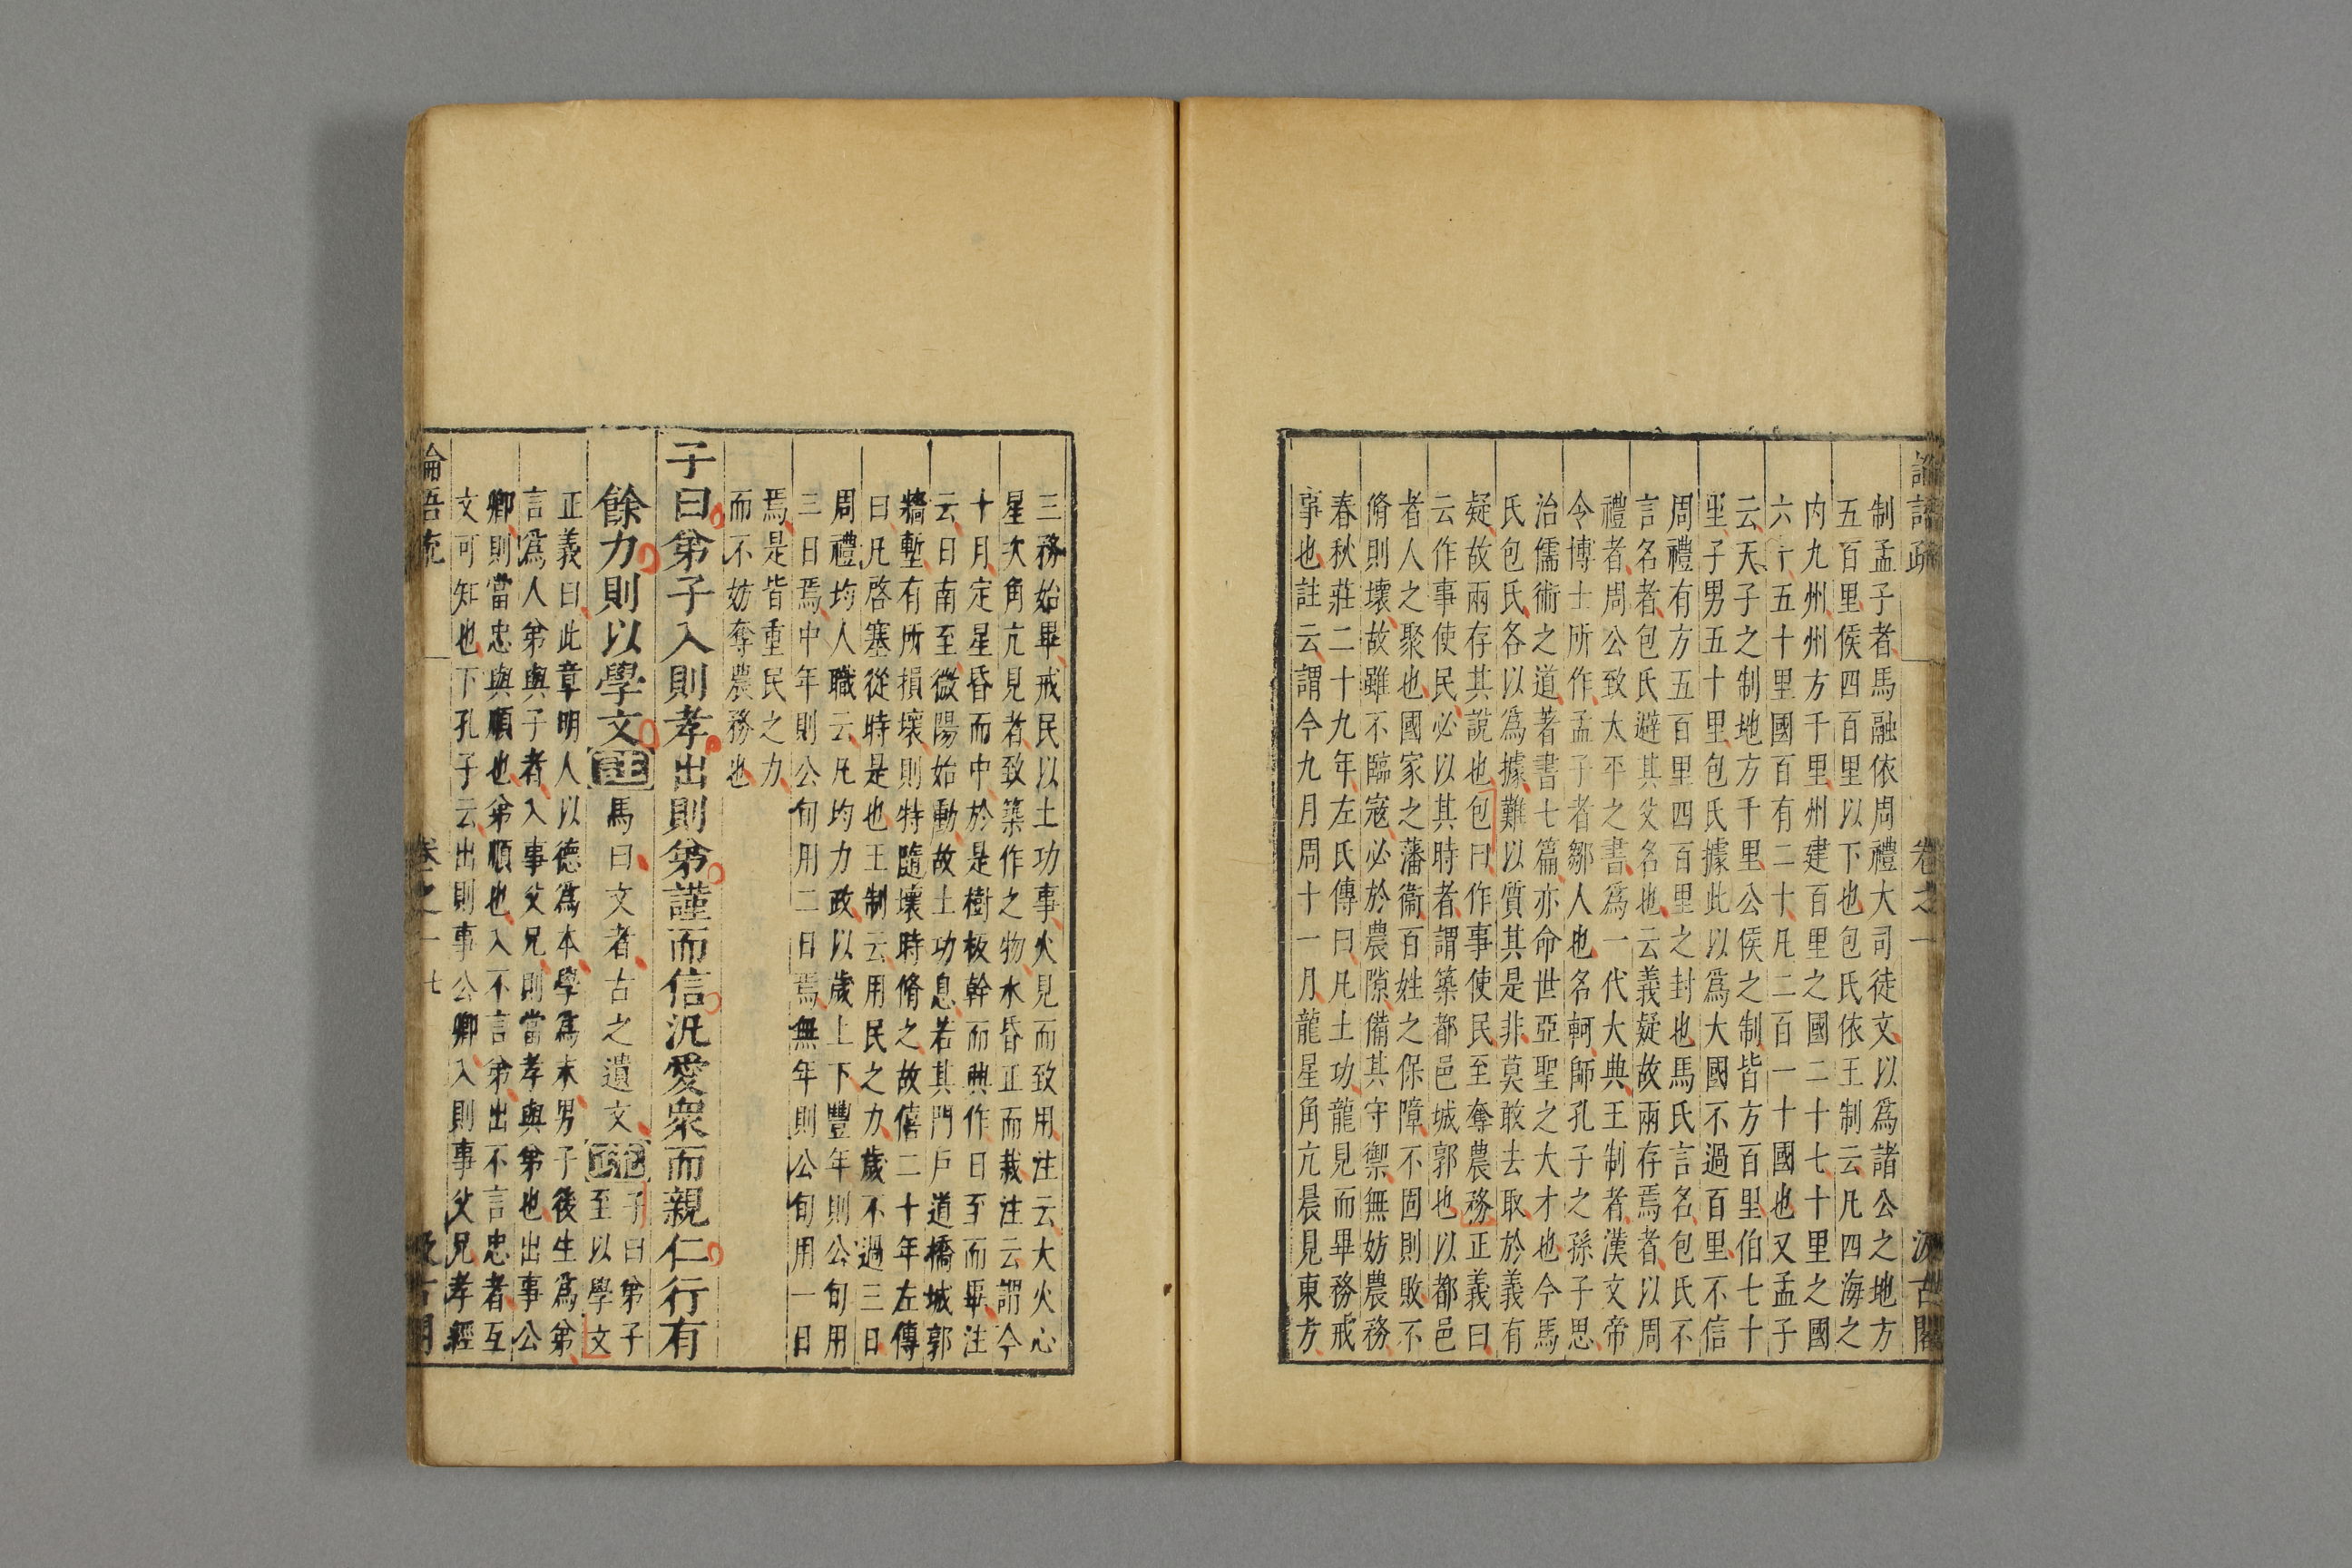 論語疏 卷之一 汲古閣
制孟子者馬融依周禮大司徒文以爲諸公之地方
五百里侯四百里以下也包氏依王制云凡四海之
内九州州方千里州建百里之國二十七十里之國
六十五十里國百有二十凡二百一十國也又孟子
云天子之制地方千里公侯之制皆方百里伯七十
里子男五十里包氏據此以爲大國不過百里不信
周禮有方五百里四百里之封也馬氏言名包氏不
言名者包氏避其父名也云義疑故兩存焉者以周
禮者周公致太平之書爲一代大典王制者漢文帝
令博士所作孟子者鄒人也名軻師孔子之孫子思
治儒術之道著書七篇亦命世亞聖之大才也今馬
氏包氏各以爲據難以質其是非莫敢去取於義有
疑故兩存其說也包曰作事使民至奪農務正義曰
云作事使民必以其時者謂築都邑城郭也以都邑
者人之聚也國家之藩衞百姓之保障不固則敗不
脩則壞故雖不臨寇必於農隙備其守禦無妨農務
春秋莊二十九年左氏傳曰凡土功龍見而畢務戒
事也註云謂今九月周十一月龍星角亢晨見東方
三務始畢戒民以土功事火見而致用注云大火心
星次角亢見者致築作之物水昏正而栽注云謂今
十月定星昏而中於是樹板幹而興作日至而畢注
云日南至微陽始動故土功息若其門戶道橋城郭
牆塹有所損壞則特隨壞時脩之故僖二十年左傳
曰凡啓塞從時是也王制云用民之力歲不過三日
周禮均人職云凡均力政以歲上下豐年則公旬用
三日焉中年則公旬用二日焉無年則公旬用一日
焉是皆重民之力
而不妨奪農務也
子曰弟子入則孝出則弟謹而信汎愛衆而親仁行有
餘力則以學文 註 馬曰文者古之遺文 疏 子曰弟子
至以學文
正義曰此章明人以德爲本學爲末男子後生爲弟
言爲人弟與子者入事父兄則當孝與弟也出事公
卿則當忠與順也弟順也入不言弟出不言忠者互
文可知也下孔子云出則事公卿入則事父兄孝經
論語疏 卷之一 七 汲古閣